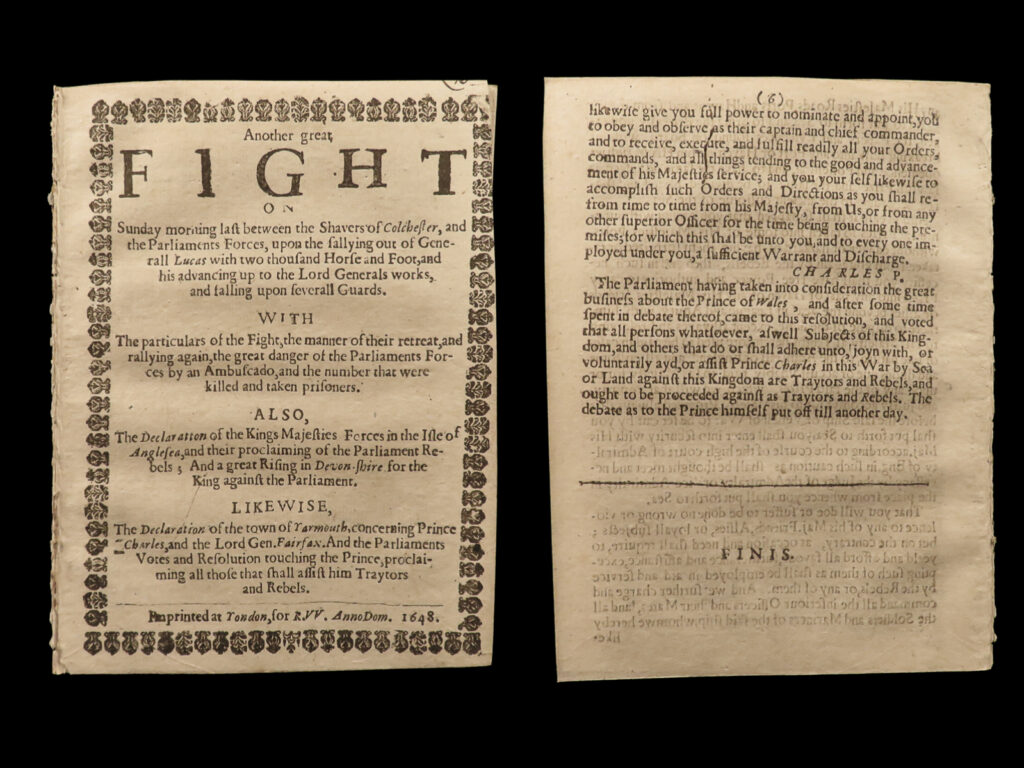 Another great
FIGHT
ON
Sunday morning last between the Shavers of Colchester, and
the Parliaments Forces, upon the sallying out of Gene-
rall Lucas with two thousand Horse and Foot, and
his advancing up to the Lord Generals works,
and falling upon severall Guards.
WITH
The particulars of the Fight, the manner of their retreat, and
rallying again, the great danger of the Parliaments For-
ces by an Ambuscado, and the number that were
killed and taken prisoners.
ALSO,
The Declaration of the Kings Majesties Forces in the Isle of
Anglesea, and their proclaiming of the Parliament Re-
bels; And a great Rising in Devon-shire for the
King against the Parliament.
LIKEWISE,
The Declaration of the town of Yarmouth, concerning Prince
Charles, and the Lord Gen. Fairfax. And the Parliaments
Votes and Resolution touching the Prince, proclai-
ming all those that shall assist him Traytors
and Rebels.
Imprinted at Yondon, for R.VV. AnnoDom. 1648.
(6)
likewise give you full power to nominate and appoint, you
to obey and observe as their captain and chief commander,
and to receive, execute, and fulfill readily all your Orders,
commands, and all things tending to the good and advance-
ment of his Majesties service; and you your self likewise to
accomplish such Orders and Directions as you shall re-
from time to time from his Majesty, from Us, or from any
other superior Officer for the time being touching the pre-
mises; for which this shal be unto you, and to every one im-
ployed under you, a sufficient Warrant and Discharge.
CHARLES P.
The Parliament having taken into consideration the great
business about the Prince of Wales, and after some time
spent in debate thereof, came to this resolution, and voted
that all persons whatsoever, aswell Subjects of this King-
dom, and others that do or shall adhere unto, joyn with, or
voluntarily ayd, or assist Prince Charles in this War by Sea
or Land against this Kingdom are Traytors and Rebels, and
ought to be proceeded against as Traytors and Rebels. The
debate as to the Prince himself put off till another day.
FINIS.